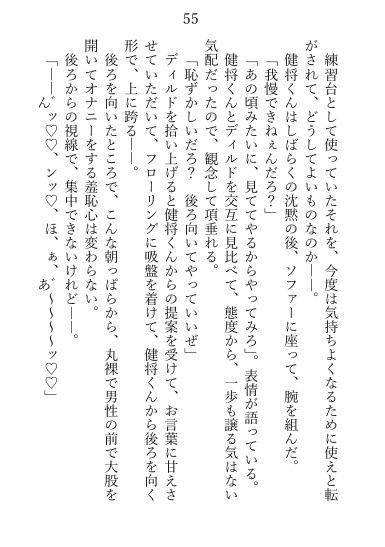 55
練習台として使っていたそれを、今度は気持ちよくなるために使えと転
がされて、どうしてよいものなのか――。
健将くんはしばらくの沈黙の後、ソファーに座って、腕を組んだ。
「我慢できねぇんだろ？」
「あの頃みたいに、見ててやるからやってみろ」。表情が語っている。
健将くんとディルドを交互に見比べて、態度から、一歩も譲る気はない
気配だったので、観念して項垂れる。
「恥ずかしいだろ？　後ろ向いてやっていいぜ」
ディルドを拾い上げると健将くんからの提案を受けて、お言葉に甘えさ
せていただいて、フローリングに吸盤を着けて、健将くんから後ろを向く
形で、上に跨る――。
後ろを向いたところで、こんな朝っぱらから、丸裸で男性の前で大股を
開いてオナニーをする羞恥心は変わらない。
後ろからの視線で、集中できないけれど――。
「――ん゛ッ♡♡、ンッ♡、ほ、ぁ、あ゛～～～～ッ♡♡」